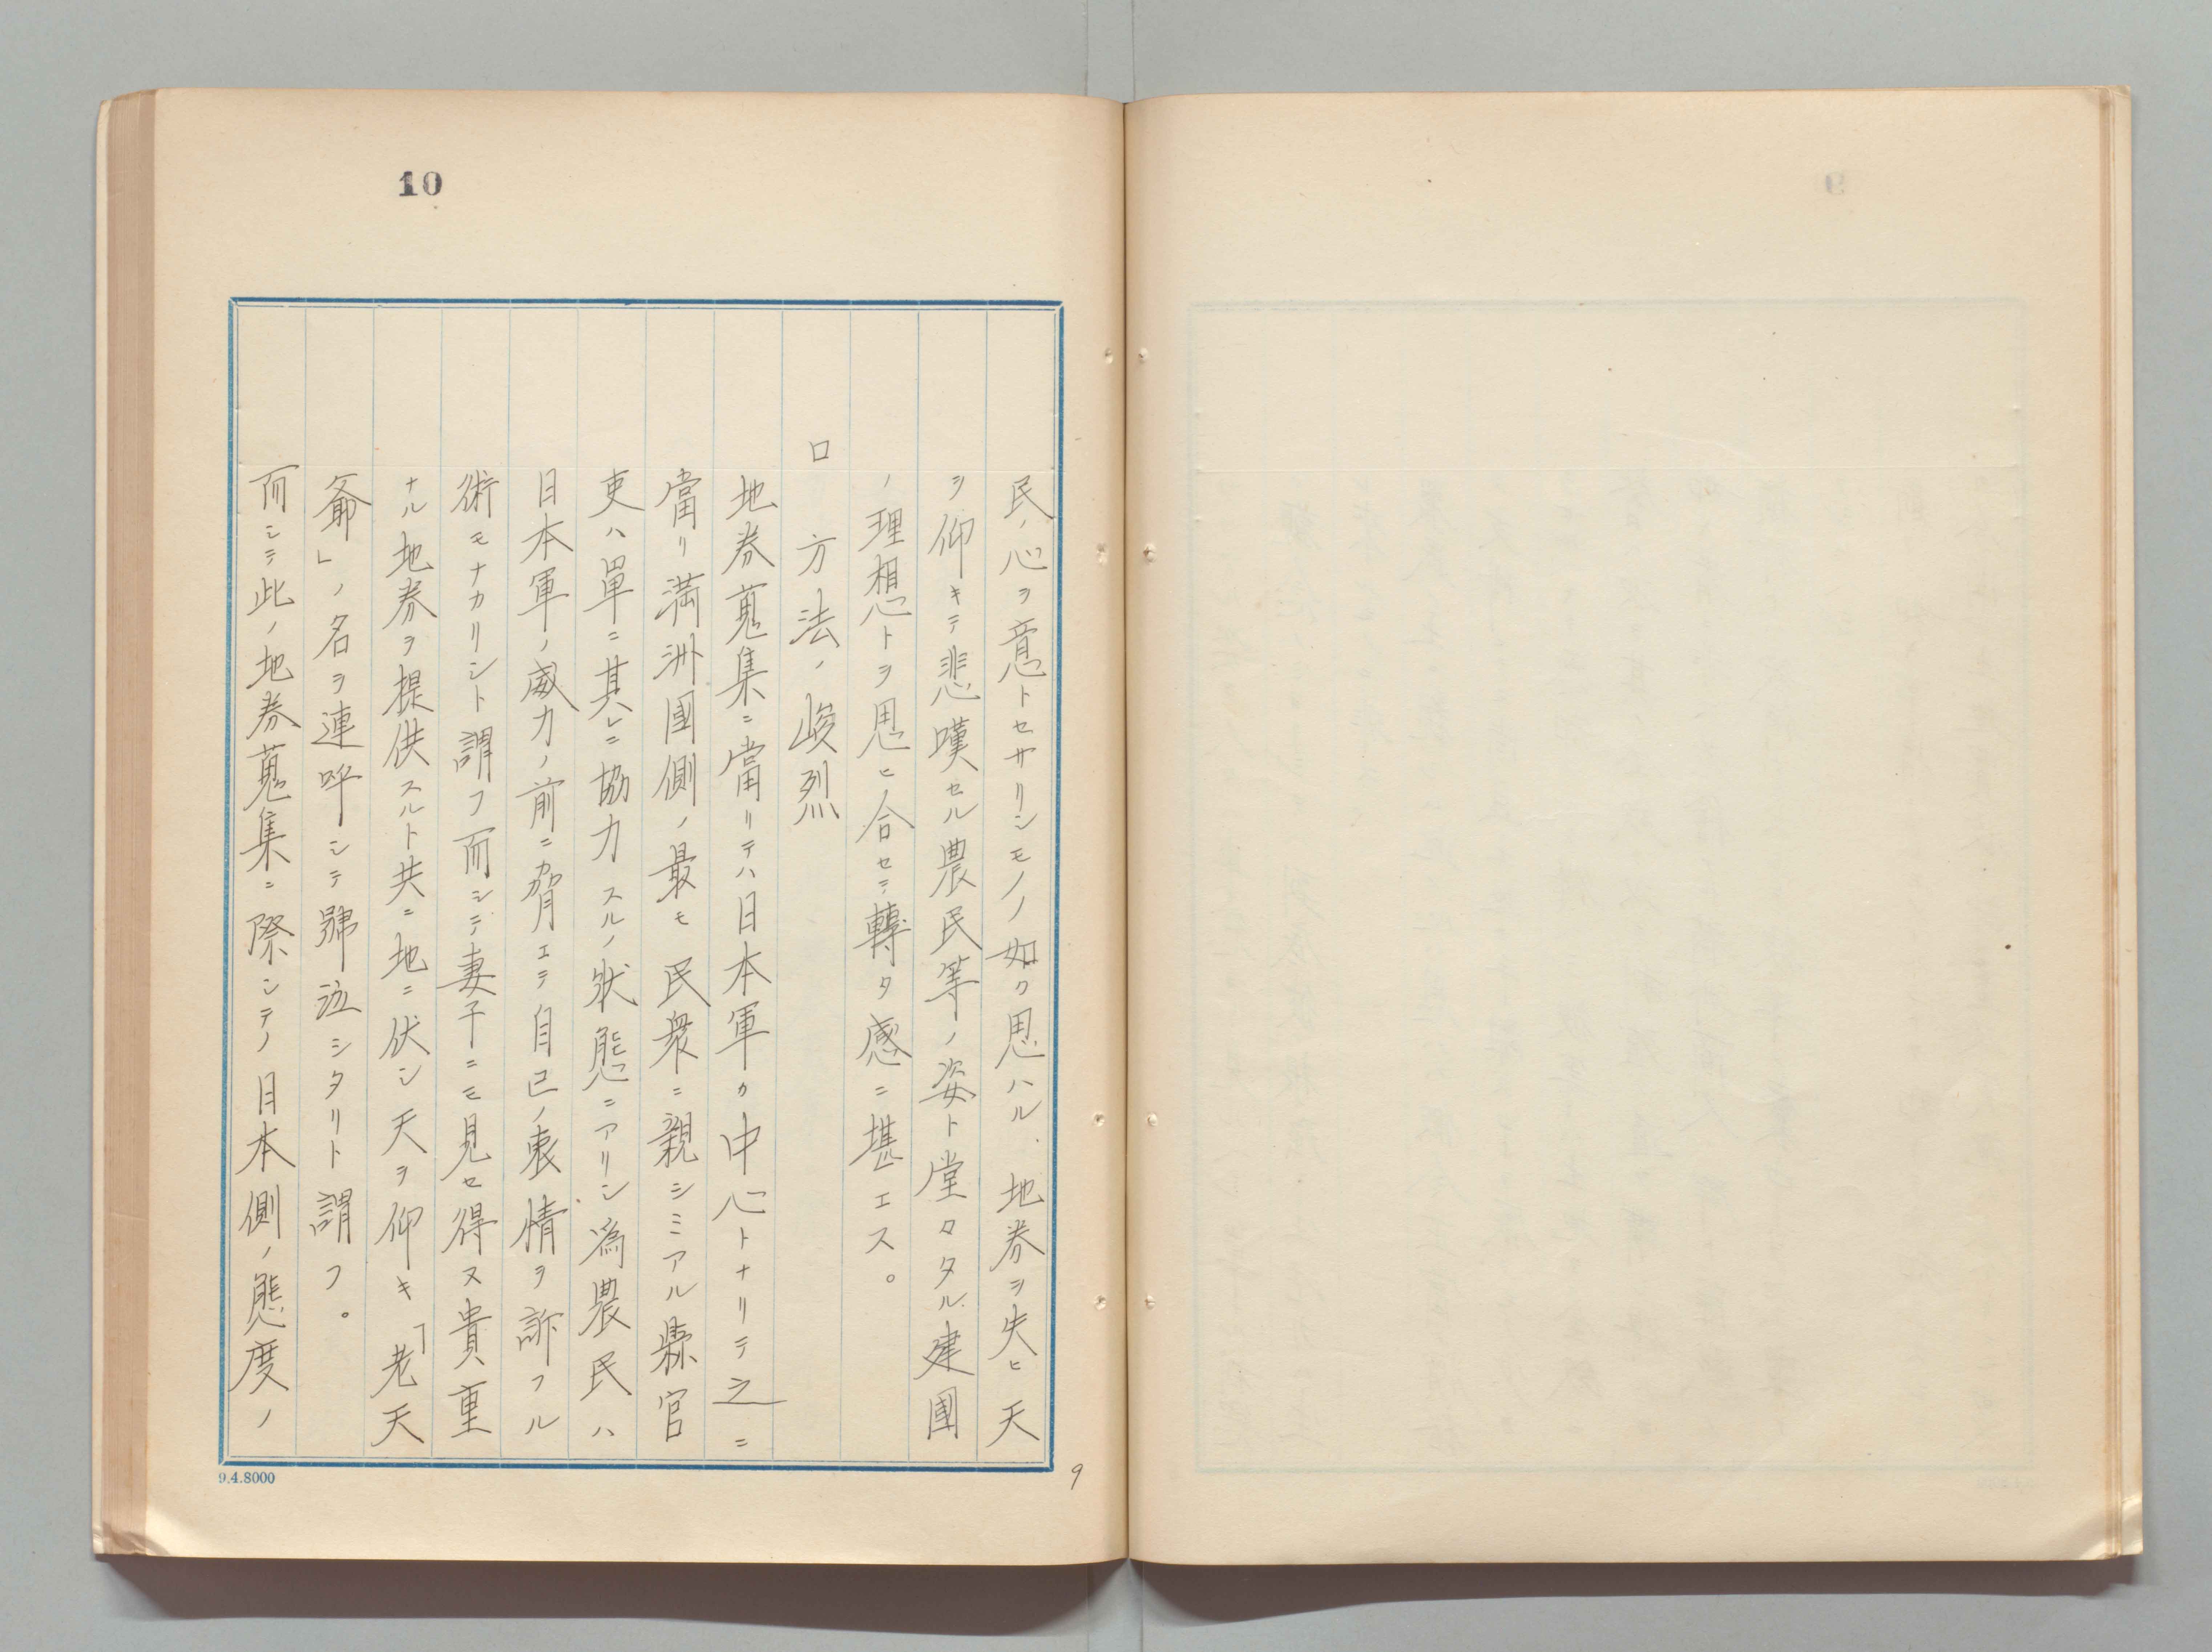 10
民ノ心ヲ意トセサリシモノノ如ク思ハル、地券ヲ失ヒ天
ヲ仰キテ悲嘆セル農民等ノ姿ト堂々タル建國
ノ理想トヲ思ヒ合セテ轉タ感ニ堪エス。
ロ 方法ノ峻烈
地券蒐集ニ當リテハ日本軍カ中心トナリテ之ニ
當リ満洲國側ノ最モ民衆ニ親シミアル縣官
吏ハ單ニ其レニ協力スルノ狀態ニアリシ為農民ハ
日本軍ノ威力ノ前ニ脅エテ自己ノ衷情ヲ訴フル
術モナカリシト謂フ而シテ妻子ニモ見セ得ヌ貴重
ナル地券ヲ提供スルト共ニ地ニ伏シ天ヲ仰キ「老天
爺」ノ名ヲ連呼シテ號泣シタリト謂フ。
而シテ此ノ地券蒐集ニ際シテノ日本側ノ態度ノ
9.4.8000
9